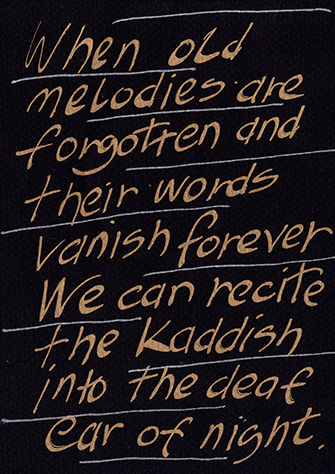 When old
melodies are
forgotten and
their words
vanish forever
We can recite
the Kaddish
into the deaf
ear of night.